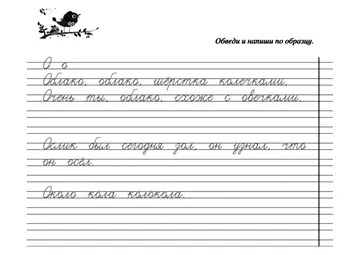 Обведи и напиши по образцу.
О о
Облако, облако, шёрстка колечками,
Очень ты, облако, схоже с овечками.
Ослик был сегодня зол, он узнал, что
он осёл.
Около кола колокола.